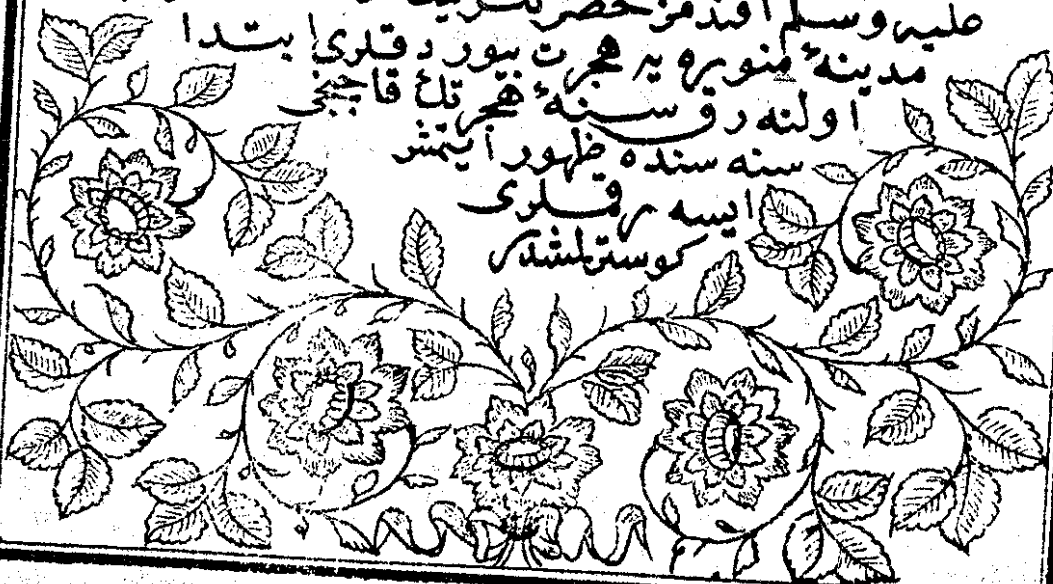 عليه وسلم افندمز حضرتلرينك
مدينهٔ منوره يه هجرت بيوردقلرى ابتدا
اولنه رق سنهٔ هجرتك قاچنجى
سنه سنده ظهور ايتمش
ايسه رقملرى
كوسترلمشدر